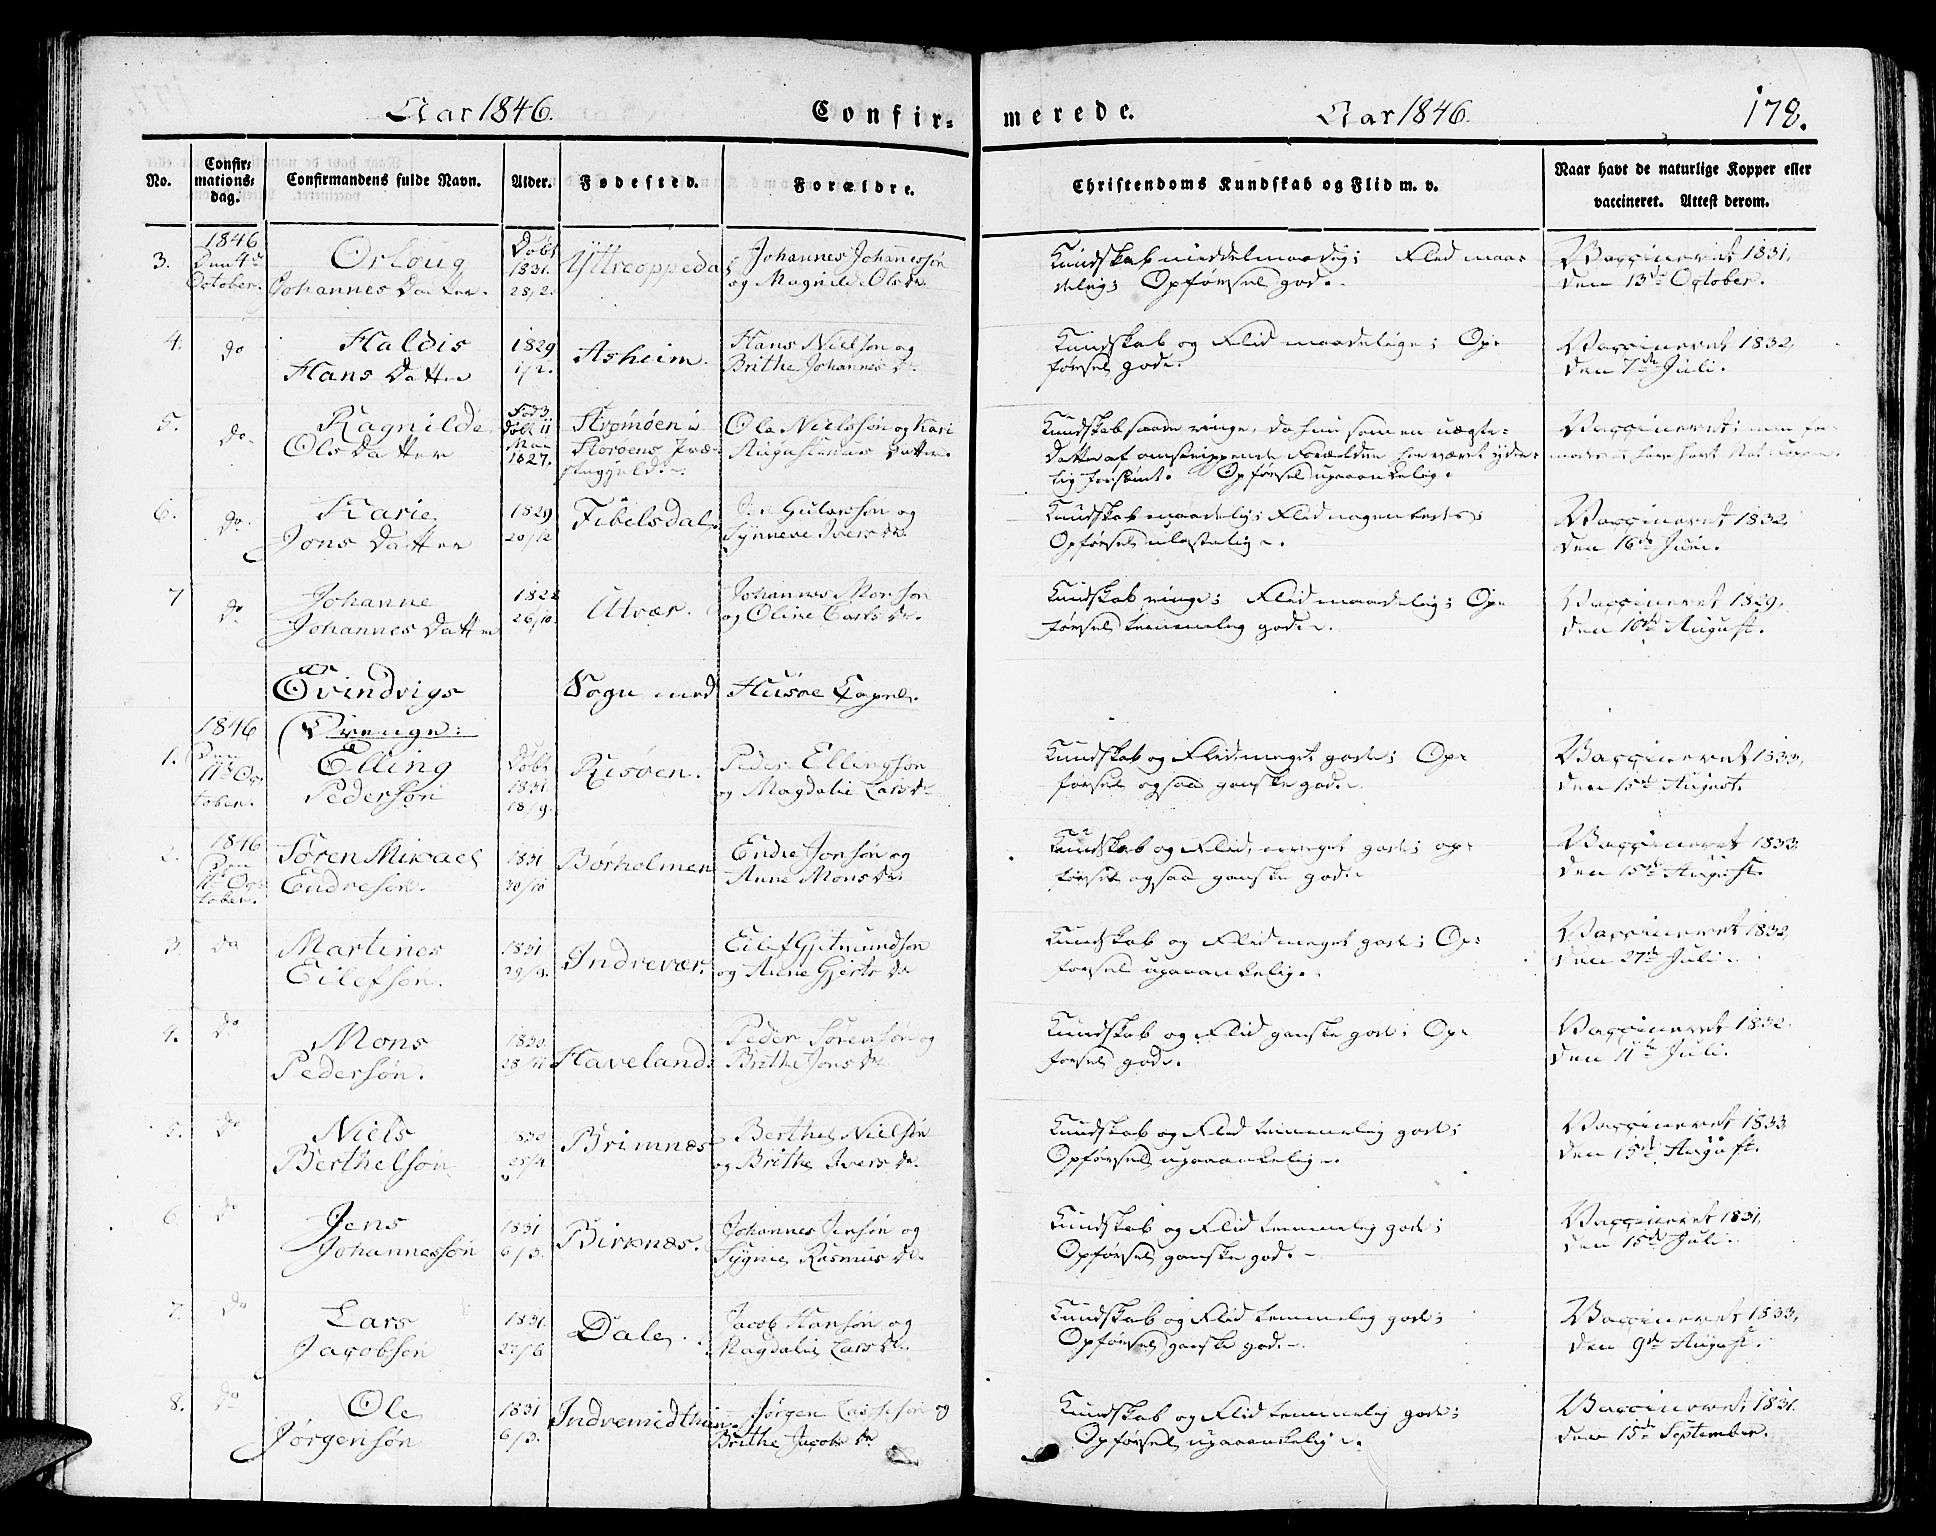 Aar 1846. Confir=
merede. Aar 1846. 178.
No. Confir=mations=dag. Confirmandens fulde Navn. Alder. Fødested. Forældre. Christendoms Kundskab og Flid m. v. Naar havt de naturlige Kopper eller vaccineret. Attest derom.
3. 1846 Den 4de October. Orloug Johannes Datter. Døbt 1831. 25/2. Yttreoppedal Johannes Johannessøn og Magnild Ols Dr. Kundskab middelmaadig; Flid maa=
delig; Opførsel god. Vaccineret 1831, den 13de October.
4. do Haldis Hans Datter 1829 1/2. Asheim. Hans Nielsøn og Brithe Johannes Dr. Kundskab og Flid maadelige; Op=
førsel god. Vaccineret 1832, den 7de Juli.
5. do Ragnilde Ols Datter Fød 3 Døbt 11 1827. Strømøen i Præ=
stegjeld. Ole Nielssøn og Kari Augustinus Datter. Kundskab saare ringe, da hun som en uægte
Datter af omstrippende Forældre har været
forsømt. Opførsel upaaankelig. Vaccineret;
6. do. Karie Jons Datter 1829 20/12 Fibelsdal. Jon og Synneve Ivers Dr. Kundskab maadelig; Flid nogenledes;
Opførsel ulastelig. Vaccineret 1832, den 16de Juni.
7 do Johanne Johannes Datter 26/10. Utvær. Johannes Monsson og Oline Carls Dr. Kundskab ringe; Flid maadelig; Op=
førsel temmelig god. Vaccineret 1829, den 10de August.
Evindvigs Sogn med Husøe Capel.
Drenge:
1. 1846 Den 11te Oc=
tober. Elling Pedersøn Døbt 1831. 18/9. Risøen. Peder Ellingsøn og Magdalie Lars Dr. Kundskab og Flid meget gode; Op=
førsel ogsaa ganske god. Vaccineret 1833, den 15de August.
2. 1846 Den 11te Oc=
tober. Søren Mikael Endresøn. 1831 30/10 Børholmen Endre Jonsøn og Anne Mons Dr. Kundskab og Flid meget gode; op=
førsel ogsaa ganske god. Vaccineret 1833, den 15de August.
3. do Martines Eilefsøn. 1831 29/9. Indrevær. Eilef Gjetmundsøn og Anne Gjerts Dr Kundskab og Flid meget gode; Op=
førsel upaaankelig. Vaccineret 1832, den 27de Juli.
4. do Mons Pedersøn. 1830 28/11 Haveland. Peder Sørensøn og Brithe Jons Dr Kundskab og Flid ganske gode; Op=
førsel god. Vaccineret 1832. den 11te Juli.
5. do Niels Berthelsøn 1830 Brimnæs Berthel Nielsøn og Brithe Ivers Dr. Kundskab og Flid temmelig gode;
Opførsel upaaankelig. Vaccineret 1833 den 15de August.
6. do Jens Johannessøn 1831 6/3. Birknæs. Johannes Jensøn og Sygnie Rasmus Dr. Kundskab og Flid temmelig gode;
Opførsel ganske god. Vaccineret 1831, den 15de Juli.
7. do Lars Jacobsøn 1831. 27/6 Dale. Jacob Hansøn og Magdalie Lars Dr. Kundskab og Flid temmelig gode;
Opførsel ganske god. Vaccineret 1833, den 9de August.
8. do Ole Jørgensøn 1831 6/3. Indremidthun. Jørgen Lassesøn og Brithe Jacobs Dr Kundskab og Flid temmelig gode;
Opførsel upaaankelig. Vaccineret 1831. den 15de September.